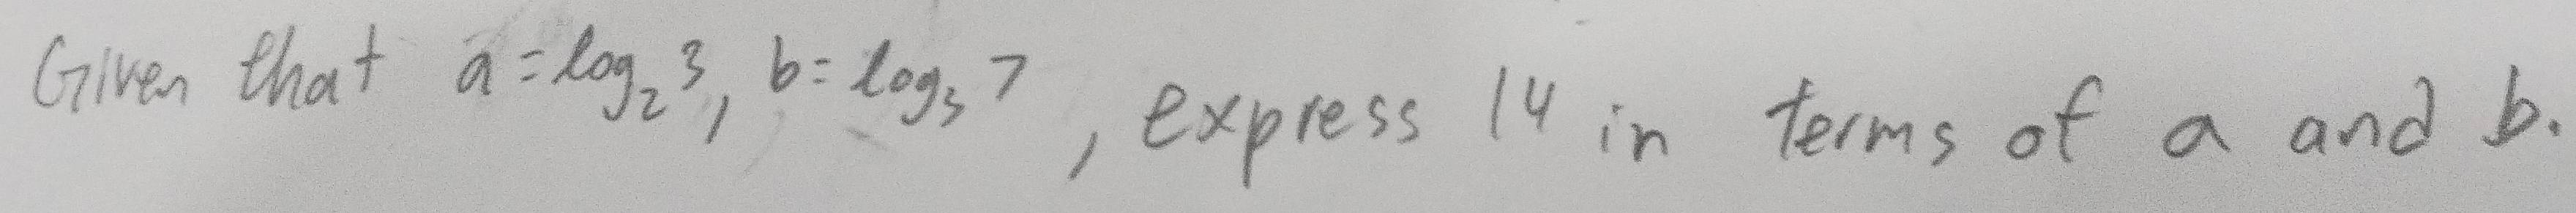 Given that a=log₂3, b=log₃7, express 14 in terms of a and b.